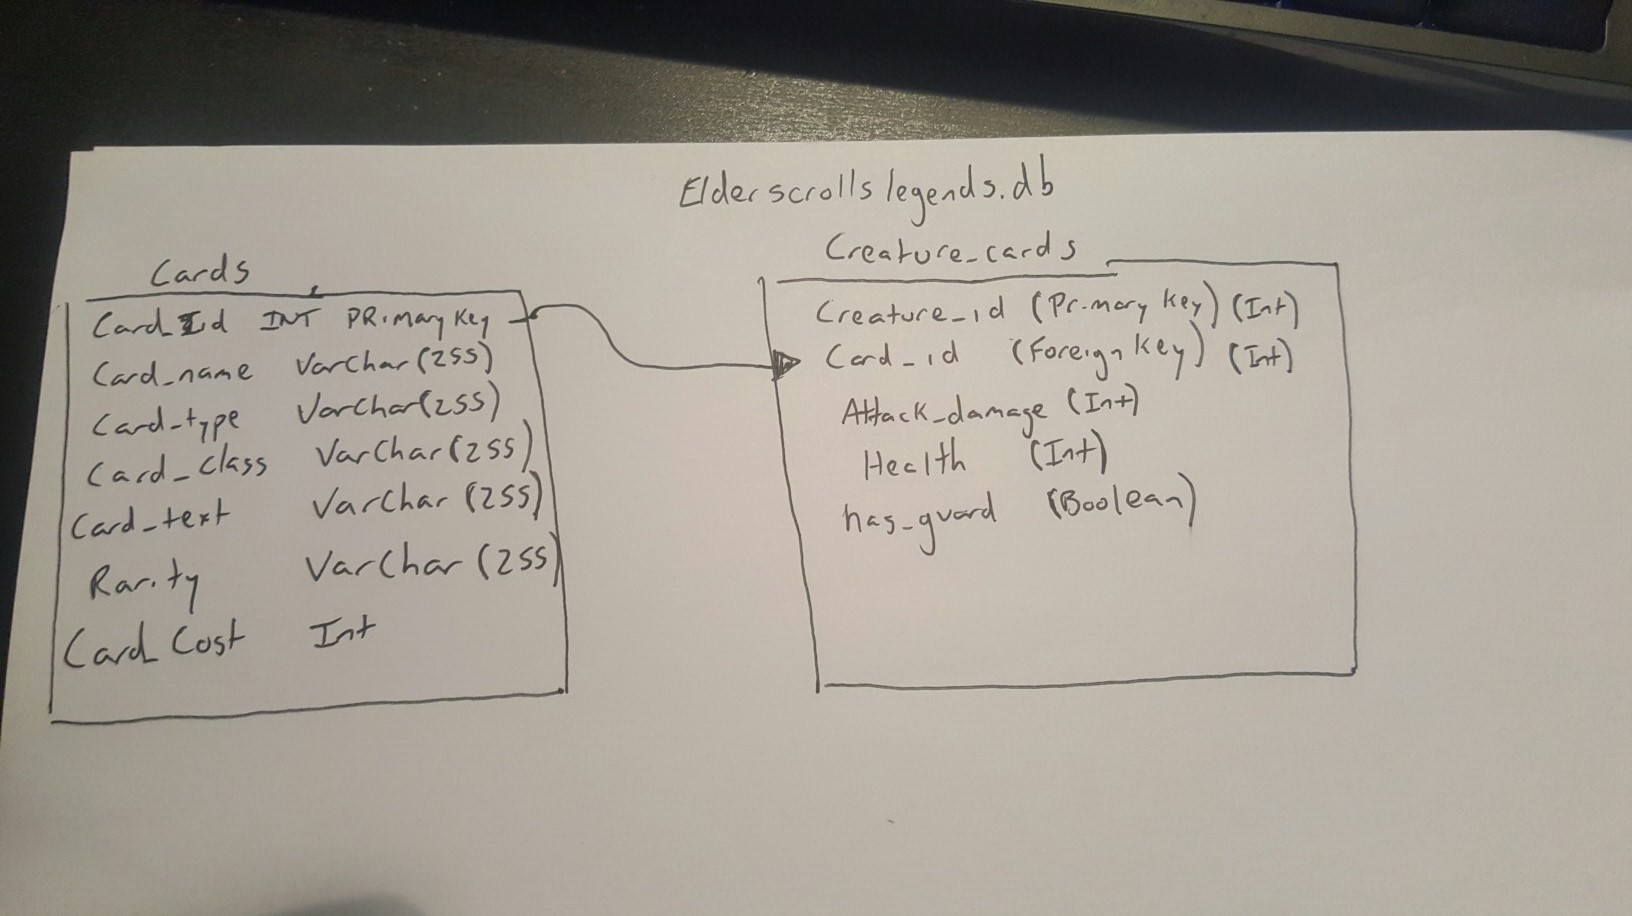 Elderscrollslegends.db
Cards
Card_Id INT PRimary Key
Card_name Varchar(255)
Card_type Varchar(255)
Card_class Varchar(255)
Card_text Varchar(255)
Rarity Varchar(255)
Card_Cost Int
Creature_cards
Creature_id (Primary Key) (Int)
Card_id (Foreign Key) (Int)
Attack_damage (Int)
Health (Int)
has_guard (Boolean)